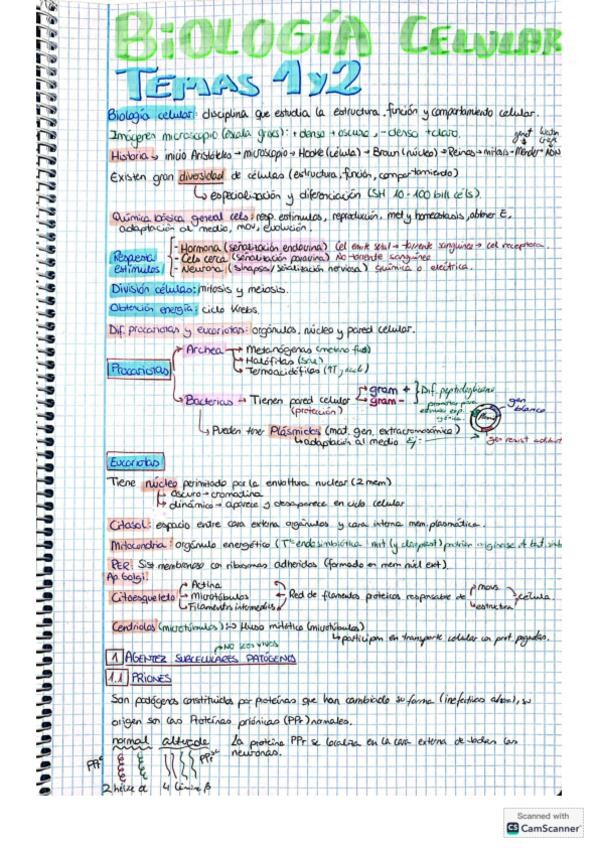 BIOLOGÍA CELULAR
TEMAS 1 y 2
Biología celular: disciplina que estudia la estructura, función y comportamiento celular.
Imágenes microscopio (escala grises): + denso + oscuro, - denso + claro.
Historia → inicio Aristóteles → microscopio → Hooke (célula) → Brown (núcleo) → → mitosis → Mendel → ADN
Existen gran diversidad de células (estructura, función, comportamiento)
↳ especialización y diferenciación (SH 10-100 bill céls)
Química básica general cels: resp. estímulos, reproducción, met y homeostasis, obtener E,
adaptación al medio, mov, evolución.
Respuesta estímulos
- Hormona (señalización endocrina) Cel emite señal → torrente sanguíneo → cel receptora.
- Cels cerca (señalización paracrina) No torrente sanguíneo
- Neurona (sinapsis/señalización nerviosa) química o eléctrica.
División celular: mitosis y meiosis.
Obtención energía: ciclo Krebs.
Dif. procariotas y eucariotas: orgánulos, núcleo y pared celular.
Procariotas
Archea → Metanógenas
→ Halófitas
→ Termoacidófitas
Bacterias → Tienen pared celular (protección)
gram +
gram -
Dif. peptidoglicano
gen blanco
↳ Pueden tener Plásmidos (mat. gen. extracromosómico)
↳ adaptación al medio Ej:
Eucariotas
Tiene núcleo perimitado por la envoltura nuclear (2 mem)
↳ oscuro → cromatina
↳ dinámico → aparece y desaparece en ciclo celular
Citosol: espacio entre cara externa orgánulos y cara interna mem. plasmática.
Mitocondria: orgánulo energético
RER: Sist membranoso con ribosomas adheridos (formado en mem núcl ext)
Ap Golgi:
Citoesqueleto
→ Actina
→ Microtúbulos
→ Filamentos intermedios
Red de filamentos proteicos responsable de
→ mov
→ estructura
célula
Centriolos (microtúbulos) → Huso mitótico (microtúbulos)
↳ participan en transporte celular con prot. pegadas.
→ NO SERES VIVOS
1 AGENTES SUBCELULARES PATÓGENOS
1.1 PRIONES
Son patógenos constituidos por proteínas que han cambiado su forma, su
origen son las Proteínas priónicas (PPr) normales.
normal alterada
La proteína PPr se localiza en la cara externa de todas las
neuronas.
2 hélice α 4 lámina β
Scanned with
CS CamScanner